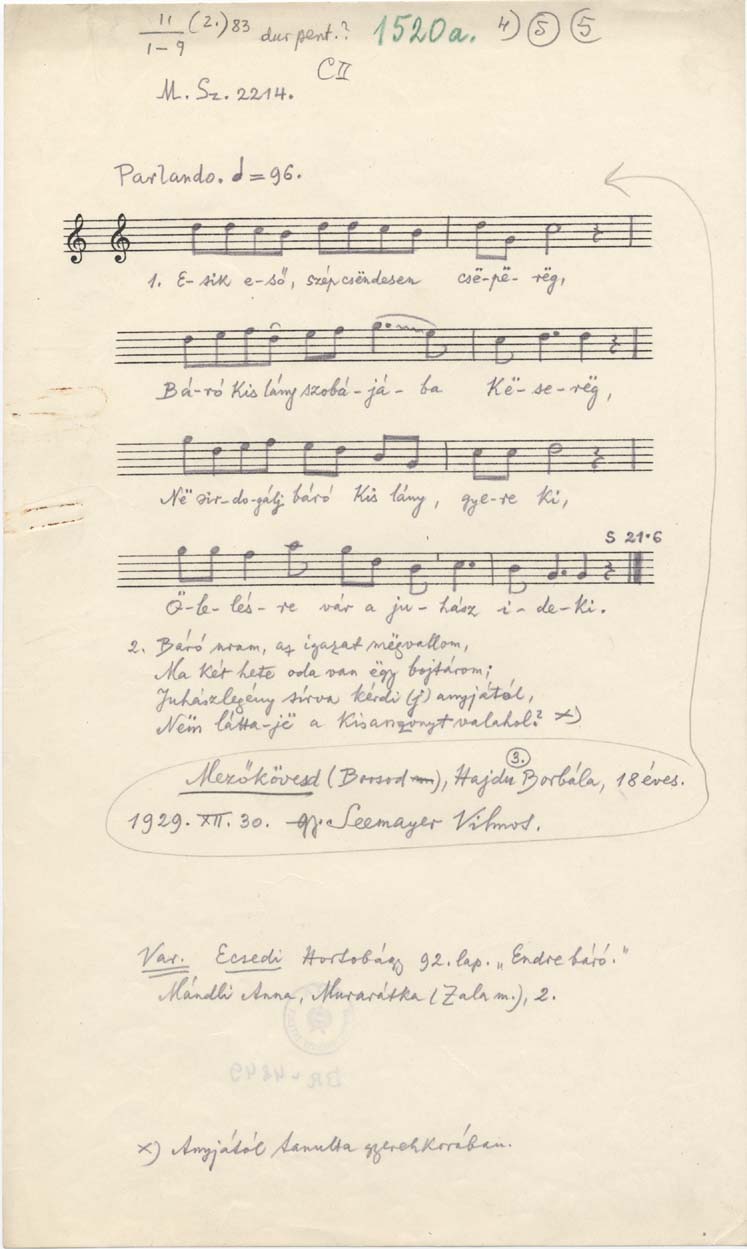 11 (2.) 83 dur pent.? 1520a. 4) 5 5
1–9
CII
M. Sz. 2214.
Parlando. = 96.
1. E-sik e-ső, szép csëndesen csë-pë-rëg,
Bá-ró Kis lány szobá-já-ba Kë-se-rëg,
Në sir-do-gálj báró Kis lány, gye-re ki,
S 21·6
Ö-le-lés-re vár a ju-hász i-de-ki.
2. Báró uram, az igazat mëgvallom,
Ma két hete oda van ëgy bojtárom;
Juhászlegény sírva kérdi (j) anyjától,
Nëm látta-jë a Kisasszonyt valahol? x)
3.
Mezőkövesd (Borsod), Hajdu Borbála, 18 éves.
1929. XII. 30. gy. Seemayer Vilmos.
Var. Ecsedi Hortobágy 92. lap. „Endre báró."
Mándli Anna, Murarátka (Zala m.), 2.
BR-4849
x) Anyjától tanulta gyerekkorában.